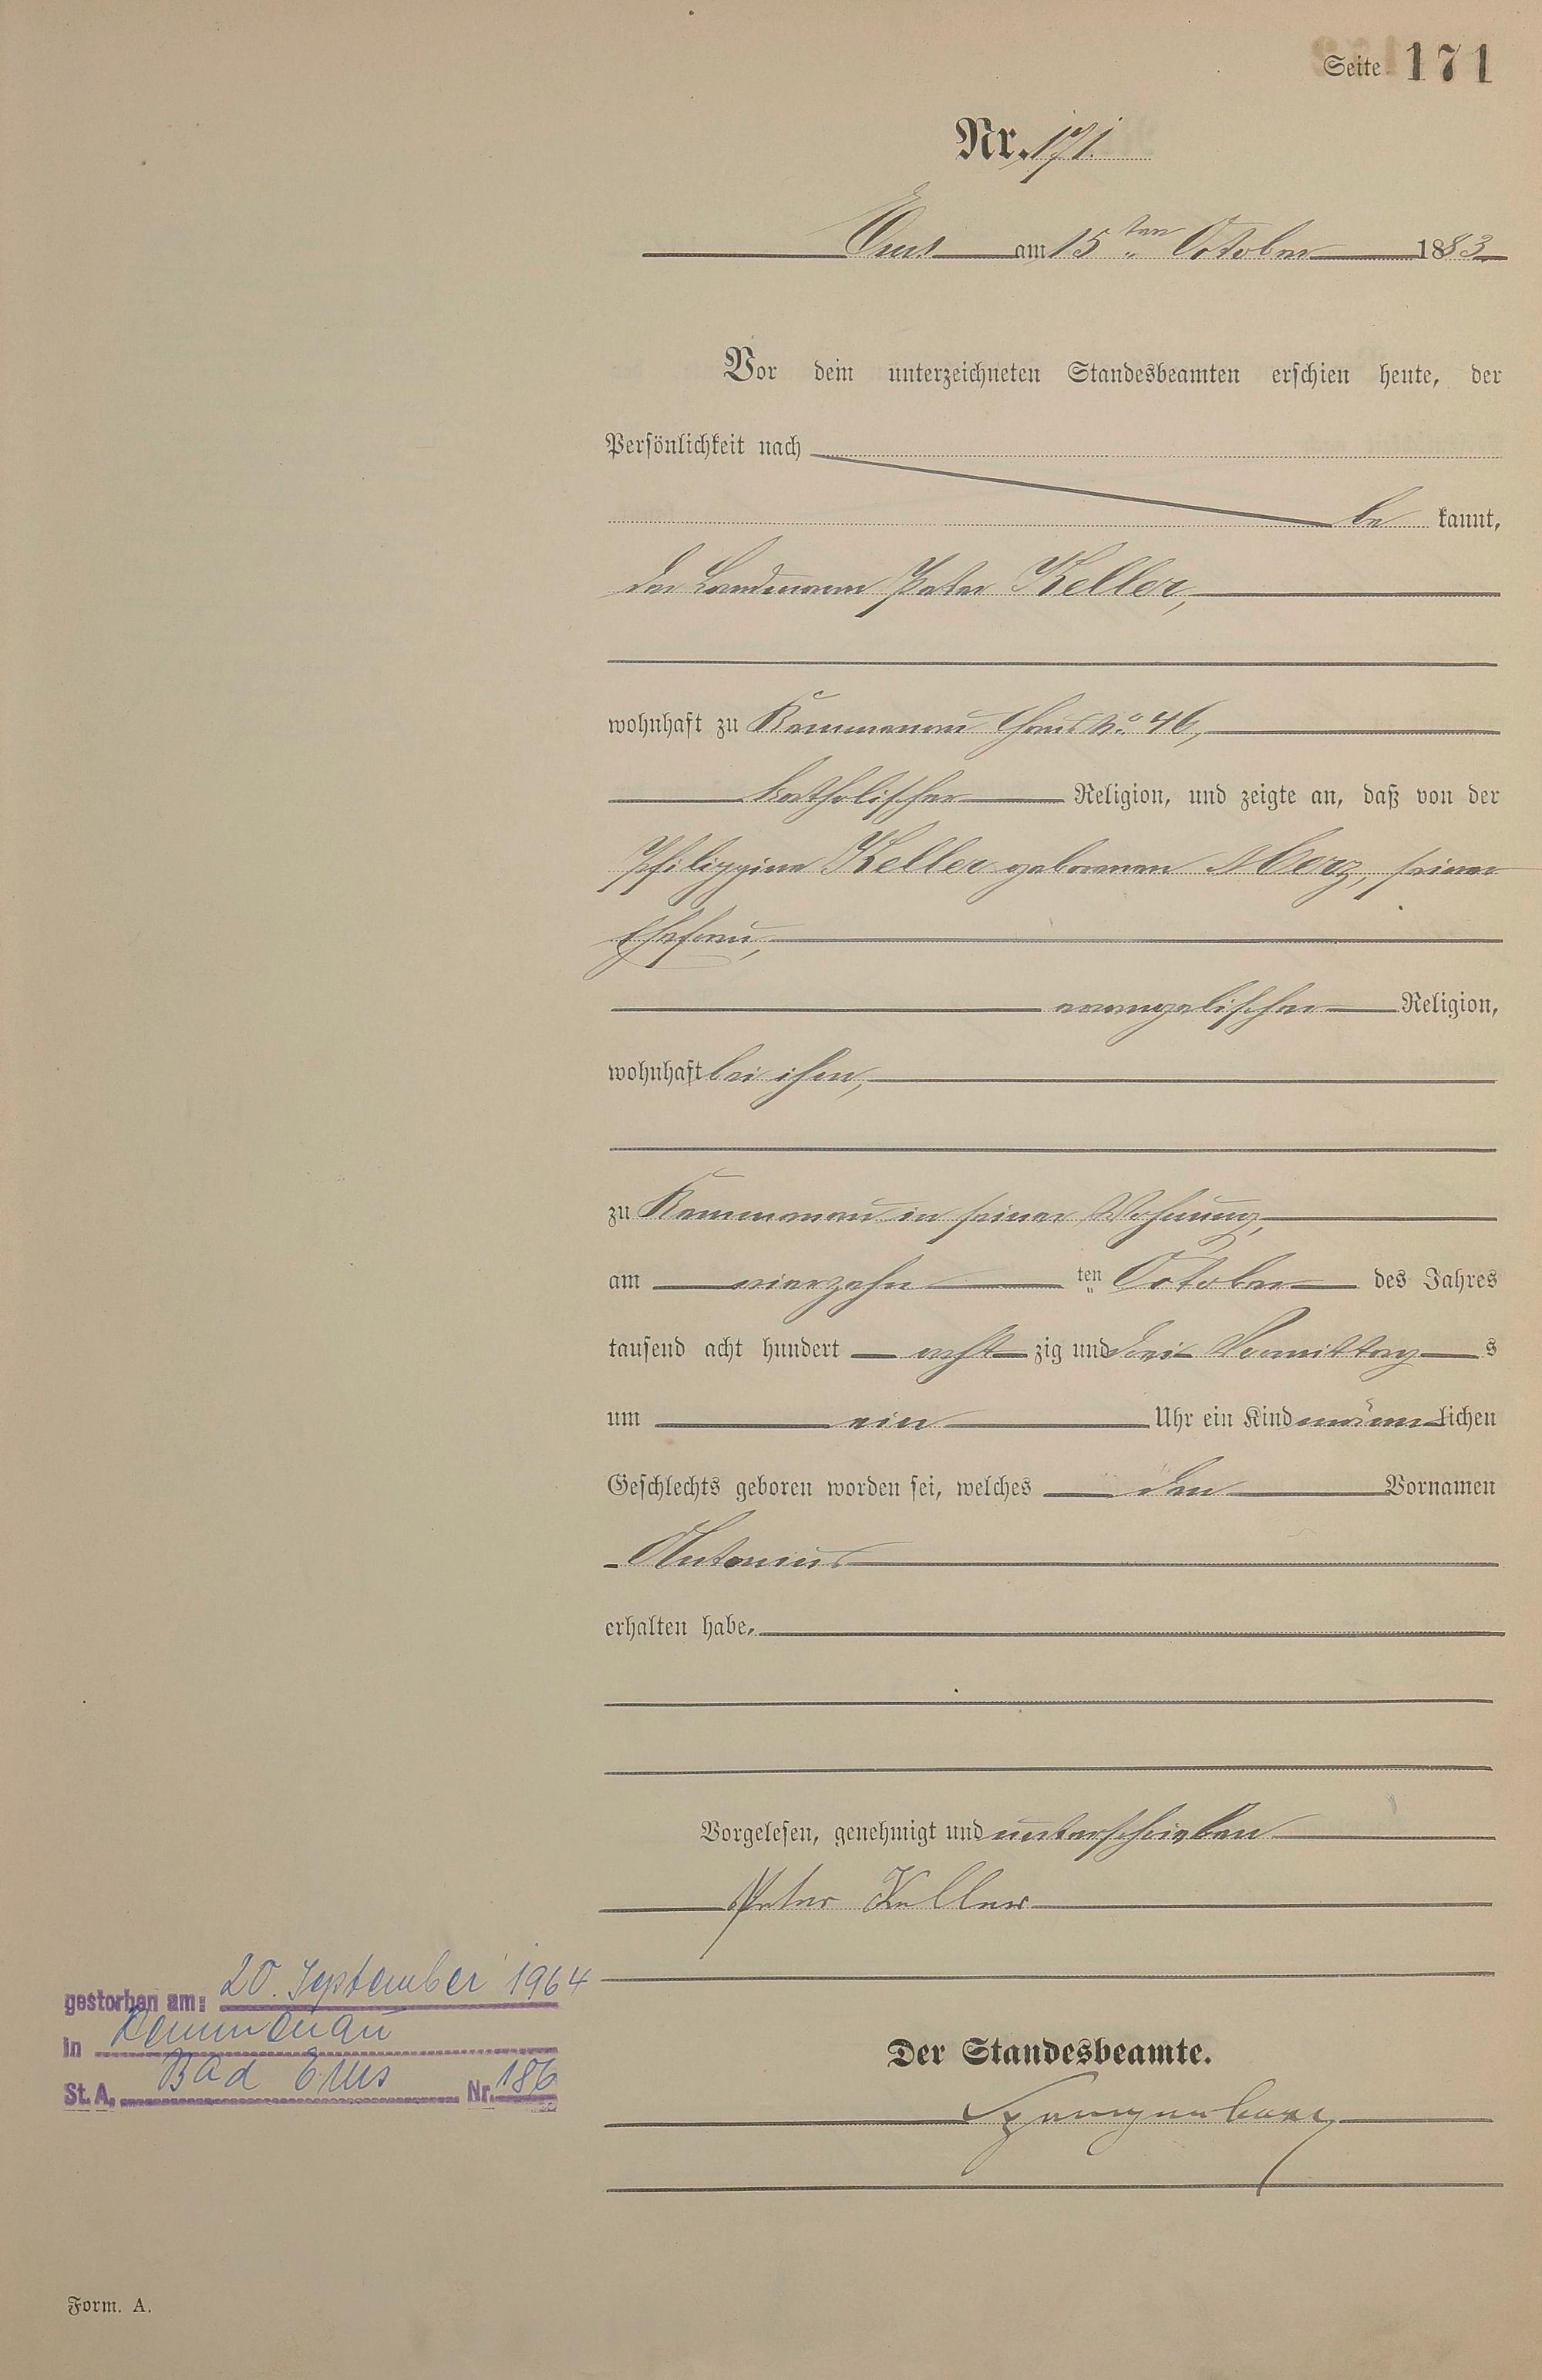 Seite 171
Nr. 171.
Ems am 15ten October 1883
Vor dem unterzeichneten Standesbeamten erschien heute, der
Persönlichkeit nach
be kannt,
der Landmann Peter Keller,
wohnhaft zu Kemmenau Haus No 46,
katholischer Religion, und zeigte an, daß von der
Philippine Keller geborenen Merz, seiner
Ehefrau,
evangelischer Religion,
wohnhaft bei ihm,
zu Kemmenau in seiner Wohnung,
am vierzehn ten October des Jahres
tausend acht hundert acht zig und drei Vormittag s
um ein Uhr ein Kind männ lichen
Geschlechts geboren worden sei, welches den Vornamen
Antonius
erhalten habe.
Vorgelesen, genehmigt und unterschrieben
Peter Keller
gestorben am: 20. September 1964
in Kemmenau
St. A. Bad Ems Nr. 186
Der Standesbeamte.
Spangenberg
Form. A.